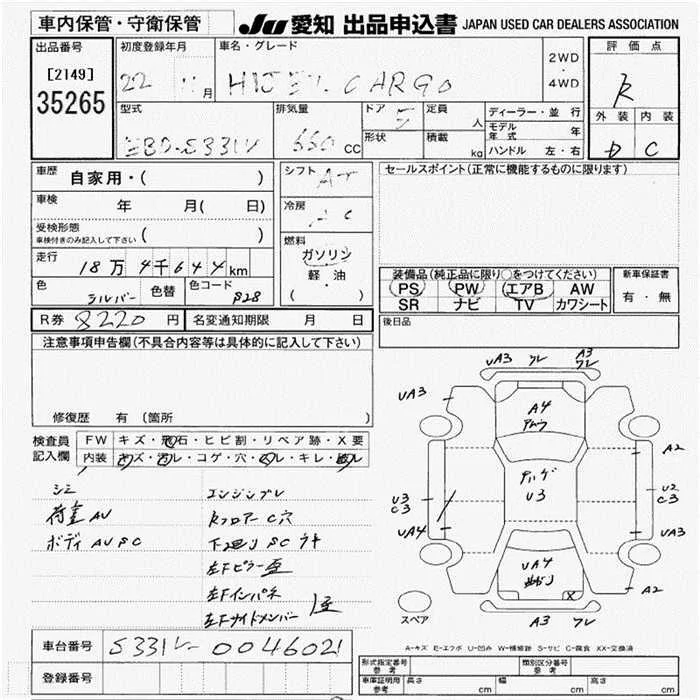 車内保管・守衛保管
JU 愛知 出品申込書 JAPAN USED CAR DEALERS ASSOCIATION
出品番号 [2149] 35265
初度登録年月 22 11 月
車名・グレード HIJET CARGO
2WD・4WD
評価点 R
外装 D 内装 C
型式 EBD-S331V
排気量 660 cc
ドア 5 形状
定員 人 積載 kg
ディーラー・並行
モデル年式 年
ハンドル 左・右
車歴 自家用・( )
車検 年 月( 日)
受検形態 車検付きのみ記入して下さい ( )
走行 18万4千644km
色 シルバー 色替 色コード S28
シフト AT
冷房 AC
燃料 ガソリン 軽油 ( )
セールスポイント(正常に機能するものに限ります)
装備品(純正品に限り○をつけてください)
PS PW エアB AW
SR ナビ TV カワシート
新車保証書 有・無
R券 8220 円 名変通知期限 月 日
後日品
注意事項申告欄(不具合内容等は具体的に記入して下さい)
修復歴 有 (箇所 )
検査員記入欄
FW キズ・飛石・ヒビ割・リペア跡・X要
内装 キズ・汚レ・コゲ・穴・スレ・キレ・臭
シミ
荷室AU
ボディAUSC
エンジンブレ
RフロアーC穴
下回りSCサキ
左Fピラー歪
左Fインパネ
左Fサイドメンバー 歪
UA3 ワレ A3 ワレ
UA3
A4
A2
U3
U3 C3
U2 C3
UA4
UA3
UA4
曲がり
X
A2
A3 ワレ
スペア
A-キズ E-エクボ U-凹み W-補修跡 S-サビ C-腐食 XX-交換済
車台番号 S331V-0046021
登録番号
形式指定番号 参考
類別区分番号 参考
車庫証明用 参考 長さ cm 幅 cm 高さ cm